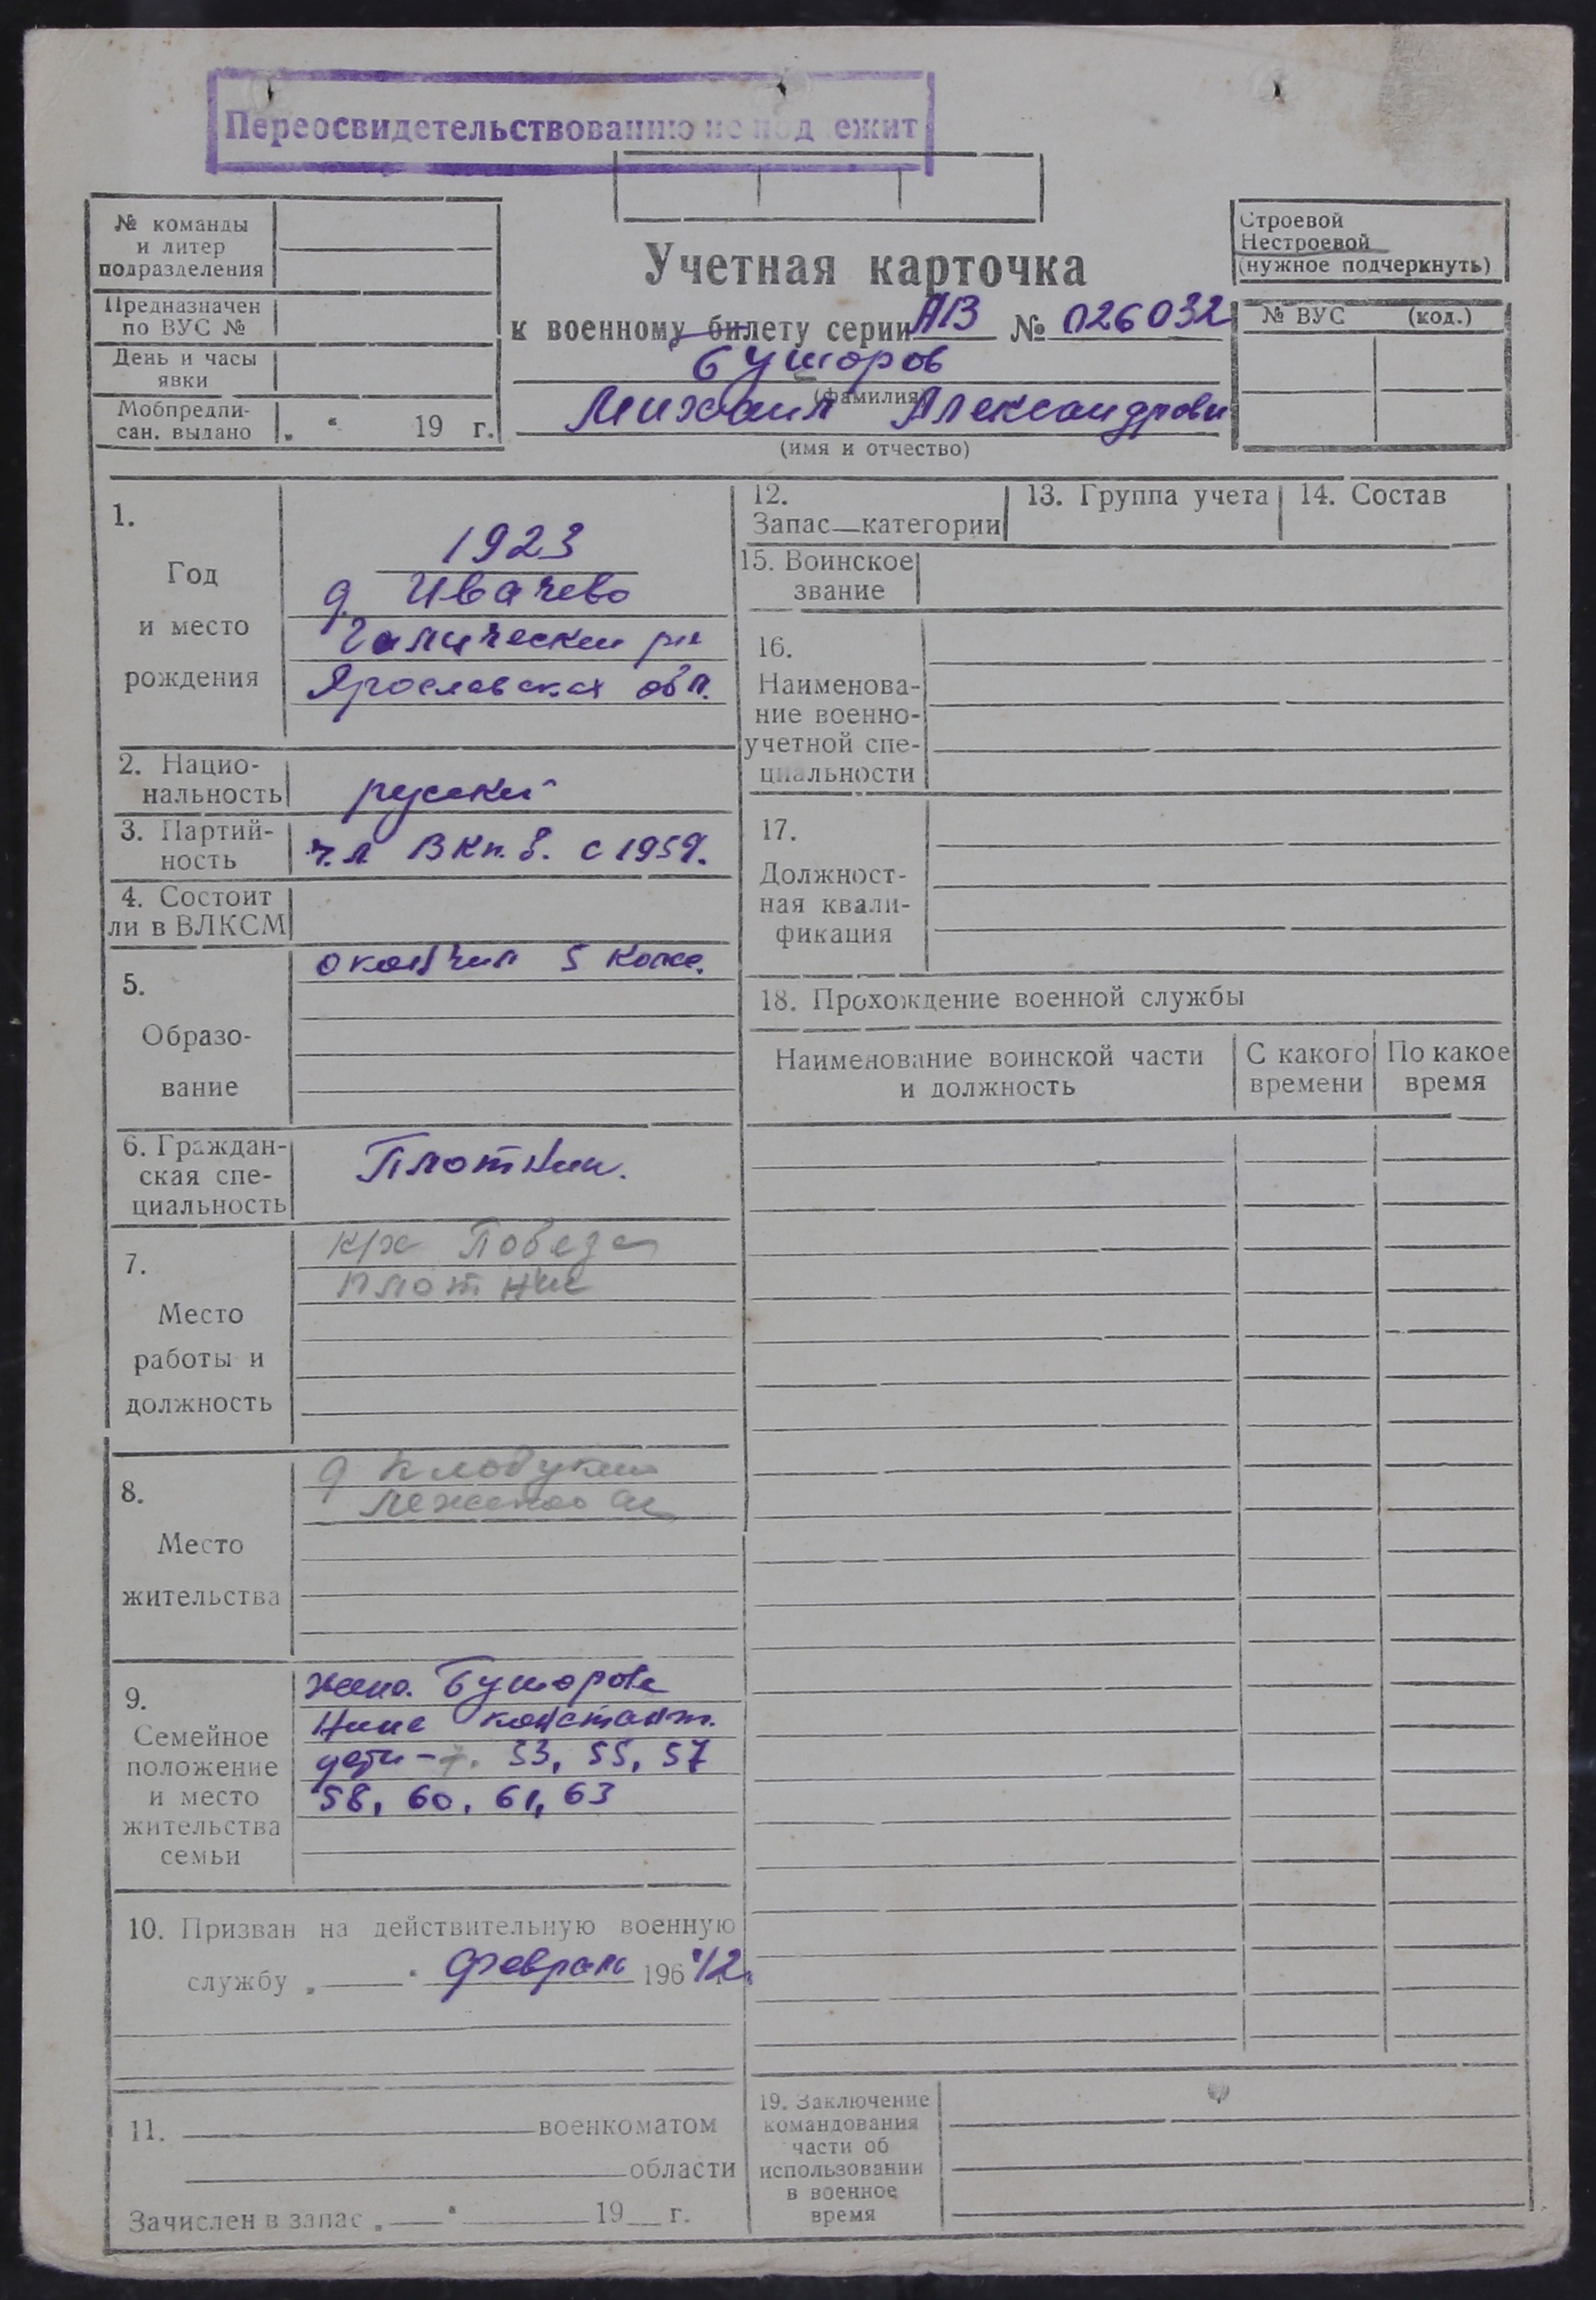 Переосвидетельствованию не под ежит
№ команды
и литер
подразделения
Предназначен
по ВУС №
День и часы
явки
Мобпредпи-
сан. выдано „ “ 19 г.
Учетная карточка
к военному билету серии АВ № 026032
Бушоров
(фамилия)
Михаил Александрови
(имя и отчество)
Строевой
Нестроевой
(нужное подчеркнуть)
№ ВУС (код.)
1.
Год
и место
рождения
1923
д Ивачево
Галически рн
Ярославская обл.
2. Нацио-
нальность
русский
3. Партий-
ность
чл ВКп.б. с 1959.
4. Состоит
ли в ВЛКСМ
5.
Образо-
вание
окончил 5
6. Граждан-
ская спе-
циальность
Плотник.
7.
Место
работы и
должность
к/х Победа
плотник
8.
Место
жительства
д
9.
Семейное
положение
и место
жительства
семьи
жена. Бушорова
Нина Констант.
дети – 53, 55, 57
58, 60, 61, 63
10. Призван на действительную военную
службу „ “ февраль 196 42
11. военкоматом
области
Зачислен в запас „ “ 19 г.
12.
Запас—категории
13. Группа учета
14. Состав
15. Воинское
звание
16.
Наименова-
ние военно-
учетной спе-
циальности
17.
Должност-
ная квали-
фикация
18. Прохождение военной службы
Наименование воинской части
и должность
С какого
времени
По какое
время
19. Заключение
командования
части об
использовании
в военное
время